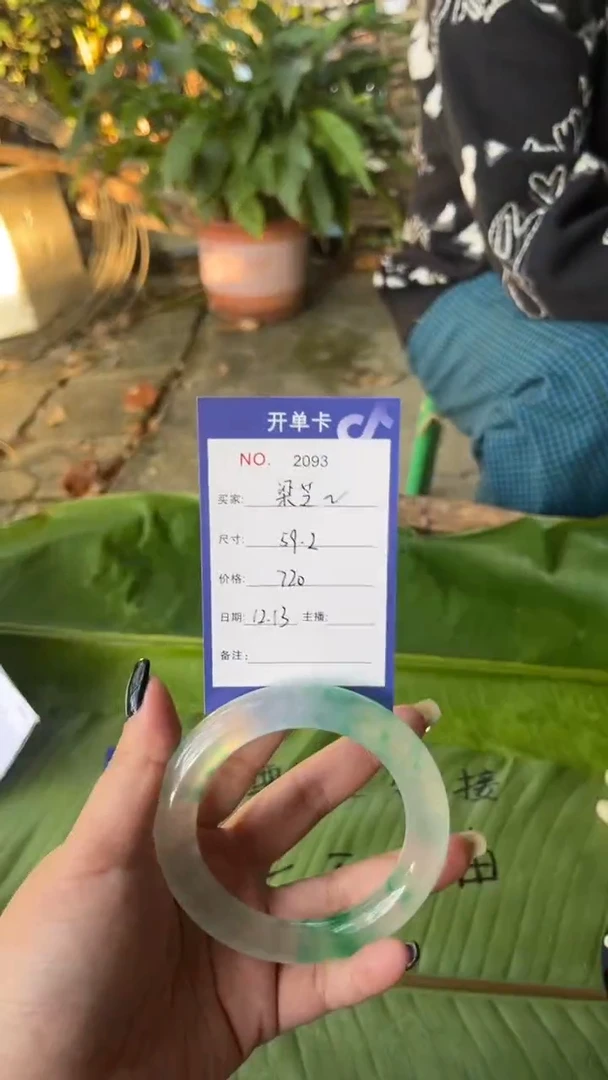 开单卡
NO. 2093
买家:
尺寸: 59.2
价格: 720
日期: 12.13 主播:
备注:
接